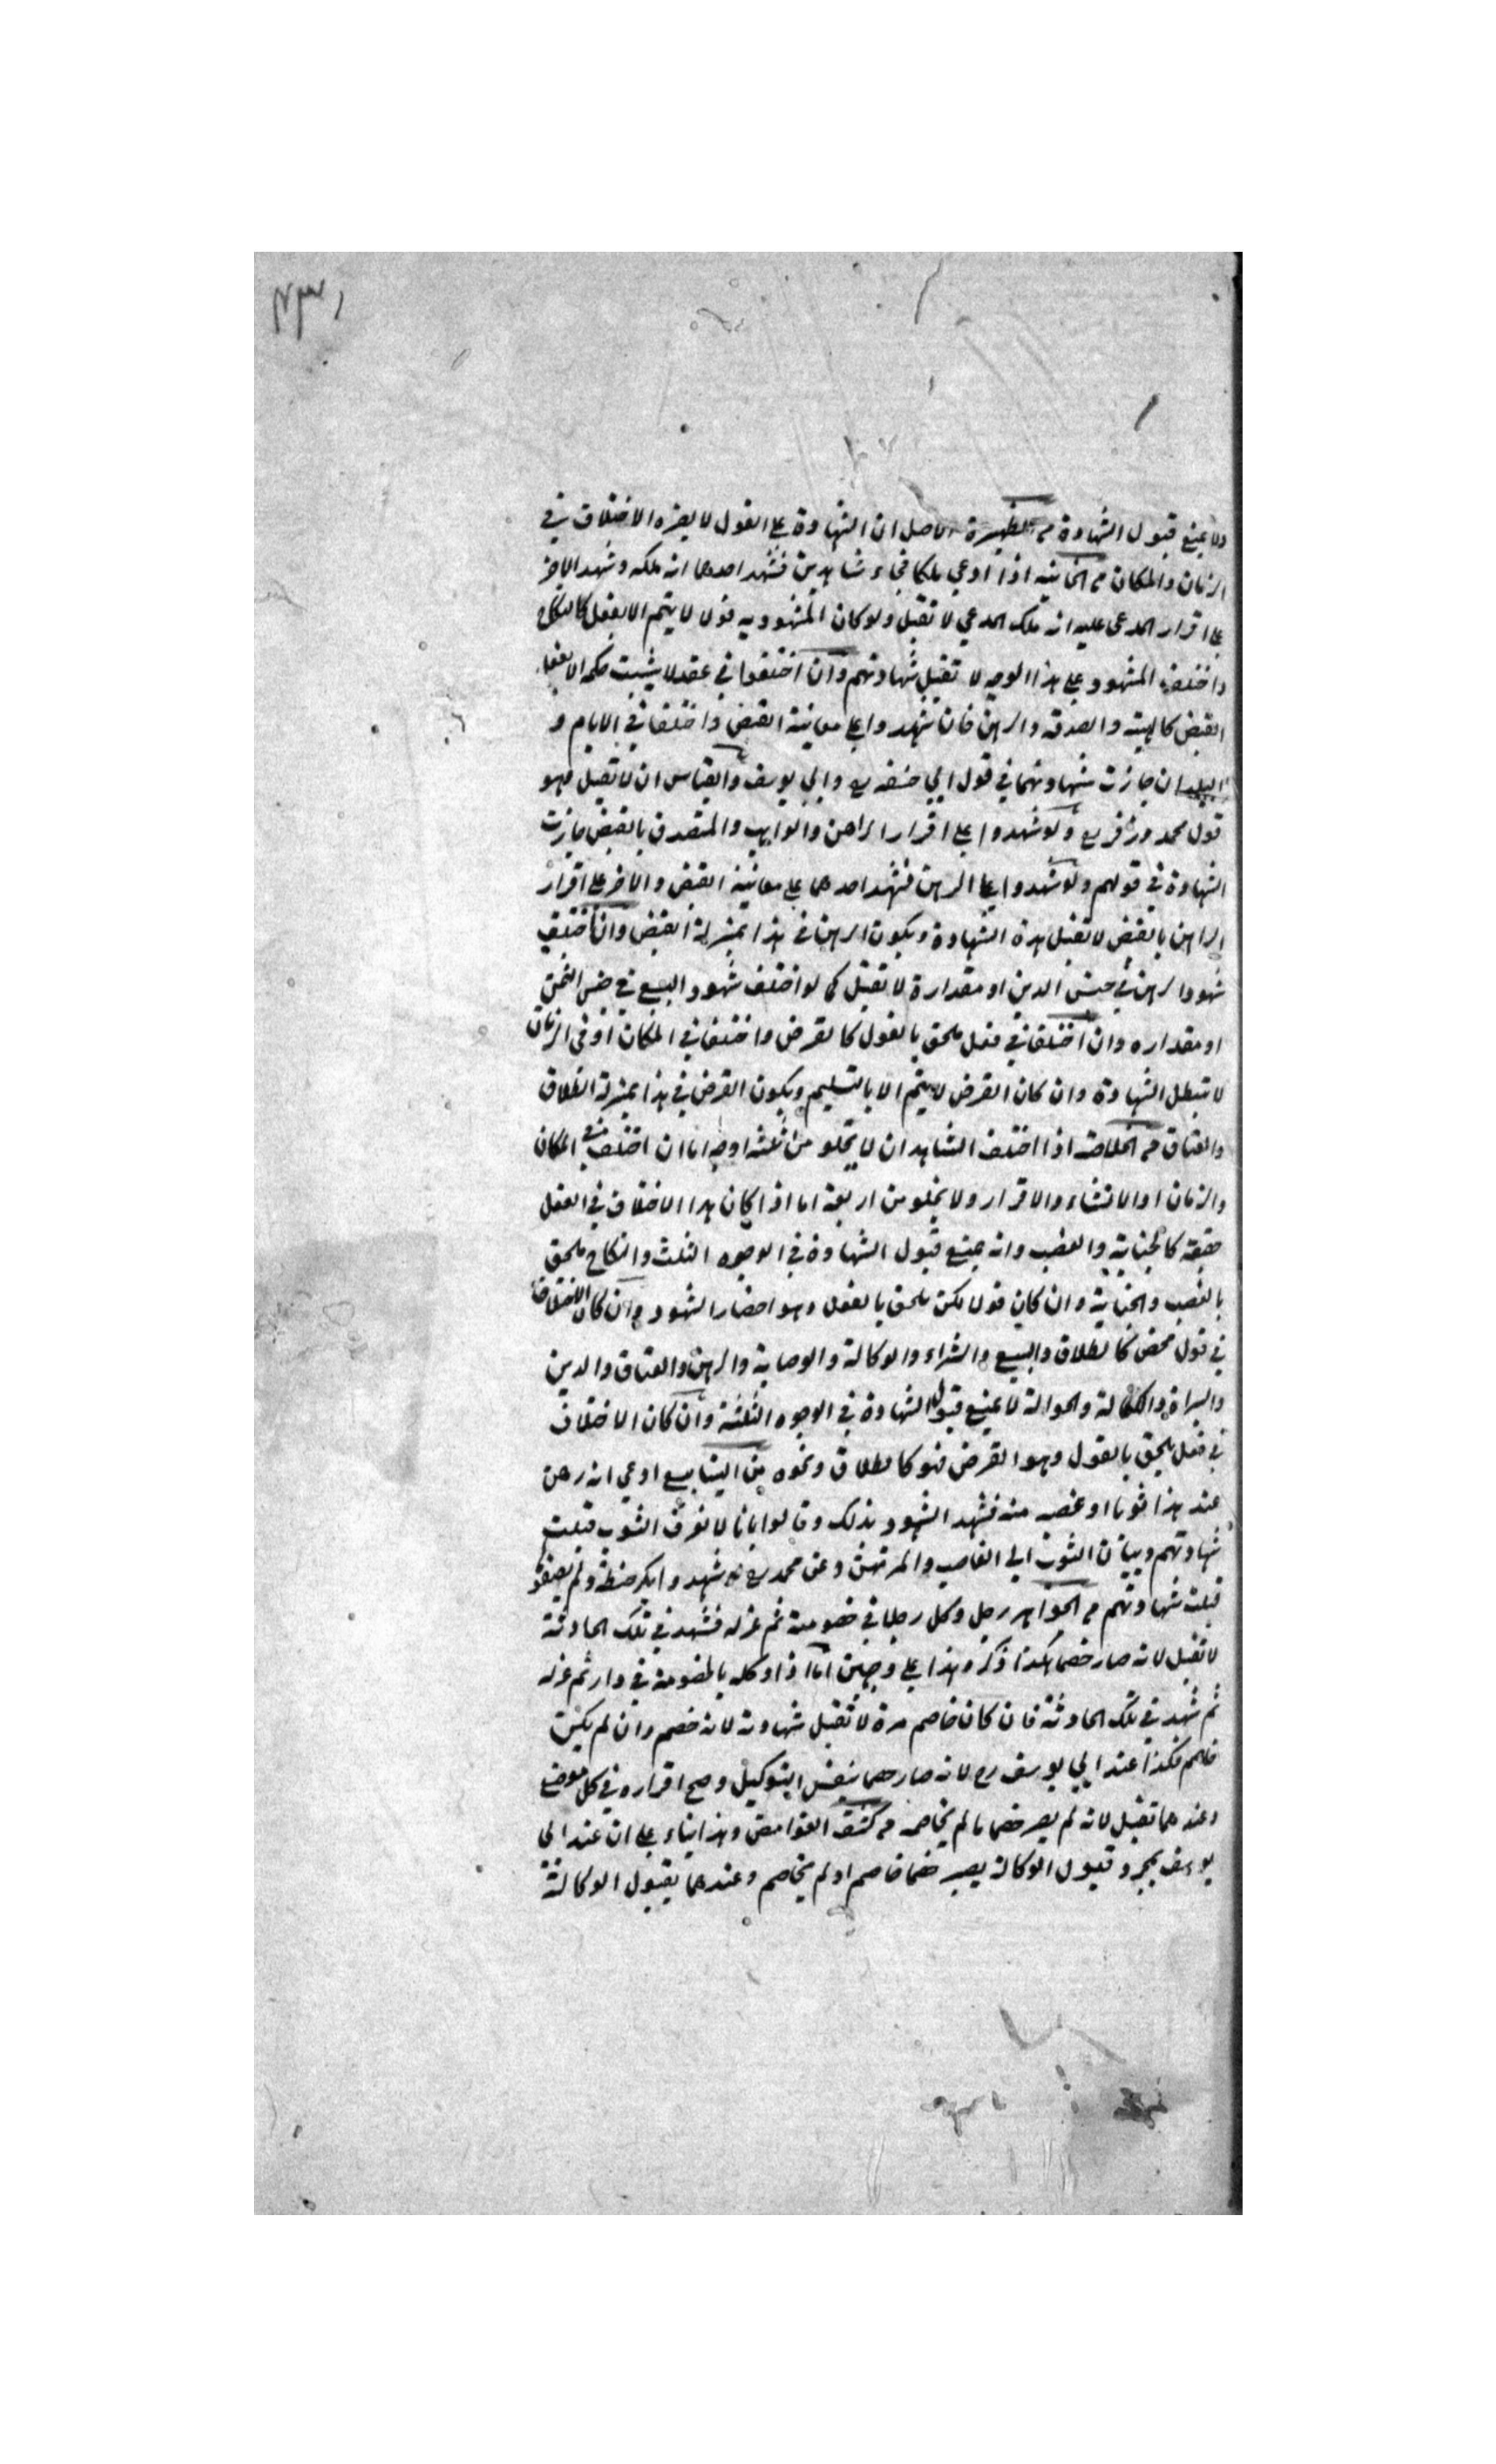 ولا يمنع قبول الشهادة من الظهيرة الاصل ان الشهادة على القول لا يضره الاختلاف في
الزمان والمكان من الخانيه اذا ادعى ملكا فجاء شاهدين فشهد احدهما انه ملكه وشهد الاخر
على اقرار المدعى عليه انه ملك المدعي لا تقبل ولو كان المشهود به قولا لا يتم الا بفعل كالنكاح
واختلف المشهود على هذا الوجه لا تقبل شهادتهم وان اختلفوا في عقد لا يثبت حكمه الا بفعل
القبض كالهبة والصدقة والرهن فان شهدوا على معاينة القبض واختلفا في الايام و
البلدان جازت شهادتهما في قول ابي حنيفه رح وابي يوسف والقياس ان لا تقبل وهو
قول محمد وزفر رح ولو شهدوا على اقرار الراهن والواهب والمتصدق بالقبض جازت
الشهادة في قولهم ولو شهدوا على الرهن فشهد احدهما على معاينة القبض والاخر على اقرار
الراهن بالقبض لا تقبل هذه الشهادة ويكون الرهن في هذا بمنزلة القبض وان اختلف
شهود الرهن في جنس الدين او مقداره لا تقبل كما لو اختلف شهود البيع في جنس الثمن
او مقداره وان اختلفا في فعل ملحق بالقول كالقرض واختلفا في المكان او في الزمان
لا تبطل الشهادة وان كان القرض لا يتم الا بالتسليم ويكون القرض في هذا بمنزلة الطلاق
والعتاق من الخلاصه اذا اختلف الشاهدان لا يخلو من ثلثة اوجه اما ان اختلف في المكان
والزمان او الانشاء والاقرار ولا يخلو من اربعة اما اذا كان هذا الاختلاف في الفعل
حقيقة كالجناية والغصب وانه يمنع قبول الشهادة في الوجوه الثلث والنكاح ملحق
بالغصب والجناية وان كان قولا لكن ملحق بالفعل وهو احضار الشهود وان كان الاختلاف
في قول محض كالطلاق والبيع والشراء والوكالة والوصاية والرهن والعتاق والدين
والبراة والكفالة والحوالة لا يمنع قبول الشهادة في الوجوه الثلثة وان كان الاختلاف
في فعل يلحق بالقول وهو القرض فهو كالطلاق ونحوه من الينابيع ادعى انه رهن
عند هذا ثوبا او غصبه منه فشهد الشهود بذلك وقالوا بانا لا نعرف الثوب قبلت
شهادتهم وبيان الثوب الى الغاصب والمرتهن وعن محمد رح شهدوا بكر حنطة ولم يصفوا
قبلت شهادتهم من الجواهر رجل وكل رجلا في خصومة ثم عزله فشهد في تلك الحادثة
لا تقبل لانه صار خصما هكذا ذكر وهذا على وجهين اما اذا وكله بالخصومة في دار ثم عزله
ثم شهد في تلك الحادثة فان كان خاصم مرة لا تقبل شهادته لانه خصم وان لم يكن
خاصم فكذا عند ابي يوسف رح لانه صار خصما بنفس التوكيل وصح اقراره في كل موضع
وعندهما تقبل لانه لم يصر خصما ما لم يخاصمه من كشف الغوامض وهذا بناء على ان عند ابي
يوسف بمجرد قبول الوكالة يصير خصما خاصم او لم يخاصم وعندهما بقبول الوكالة